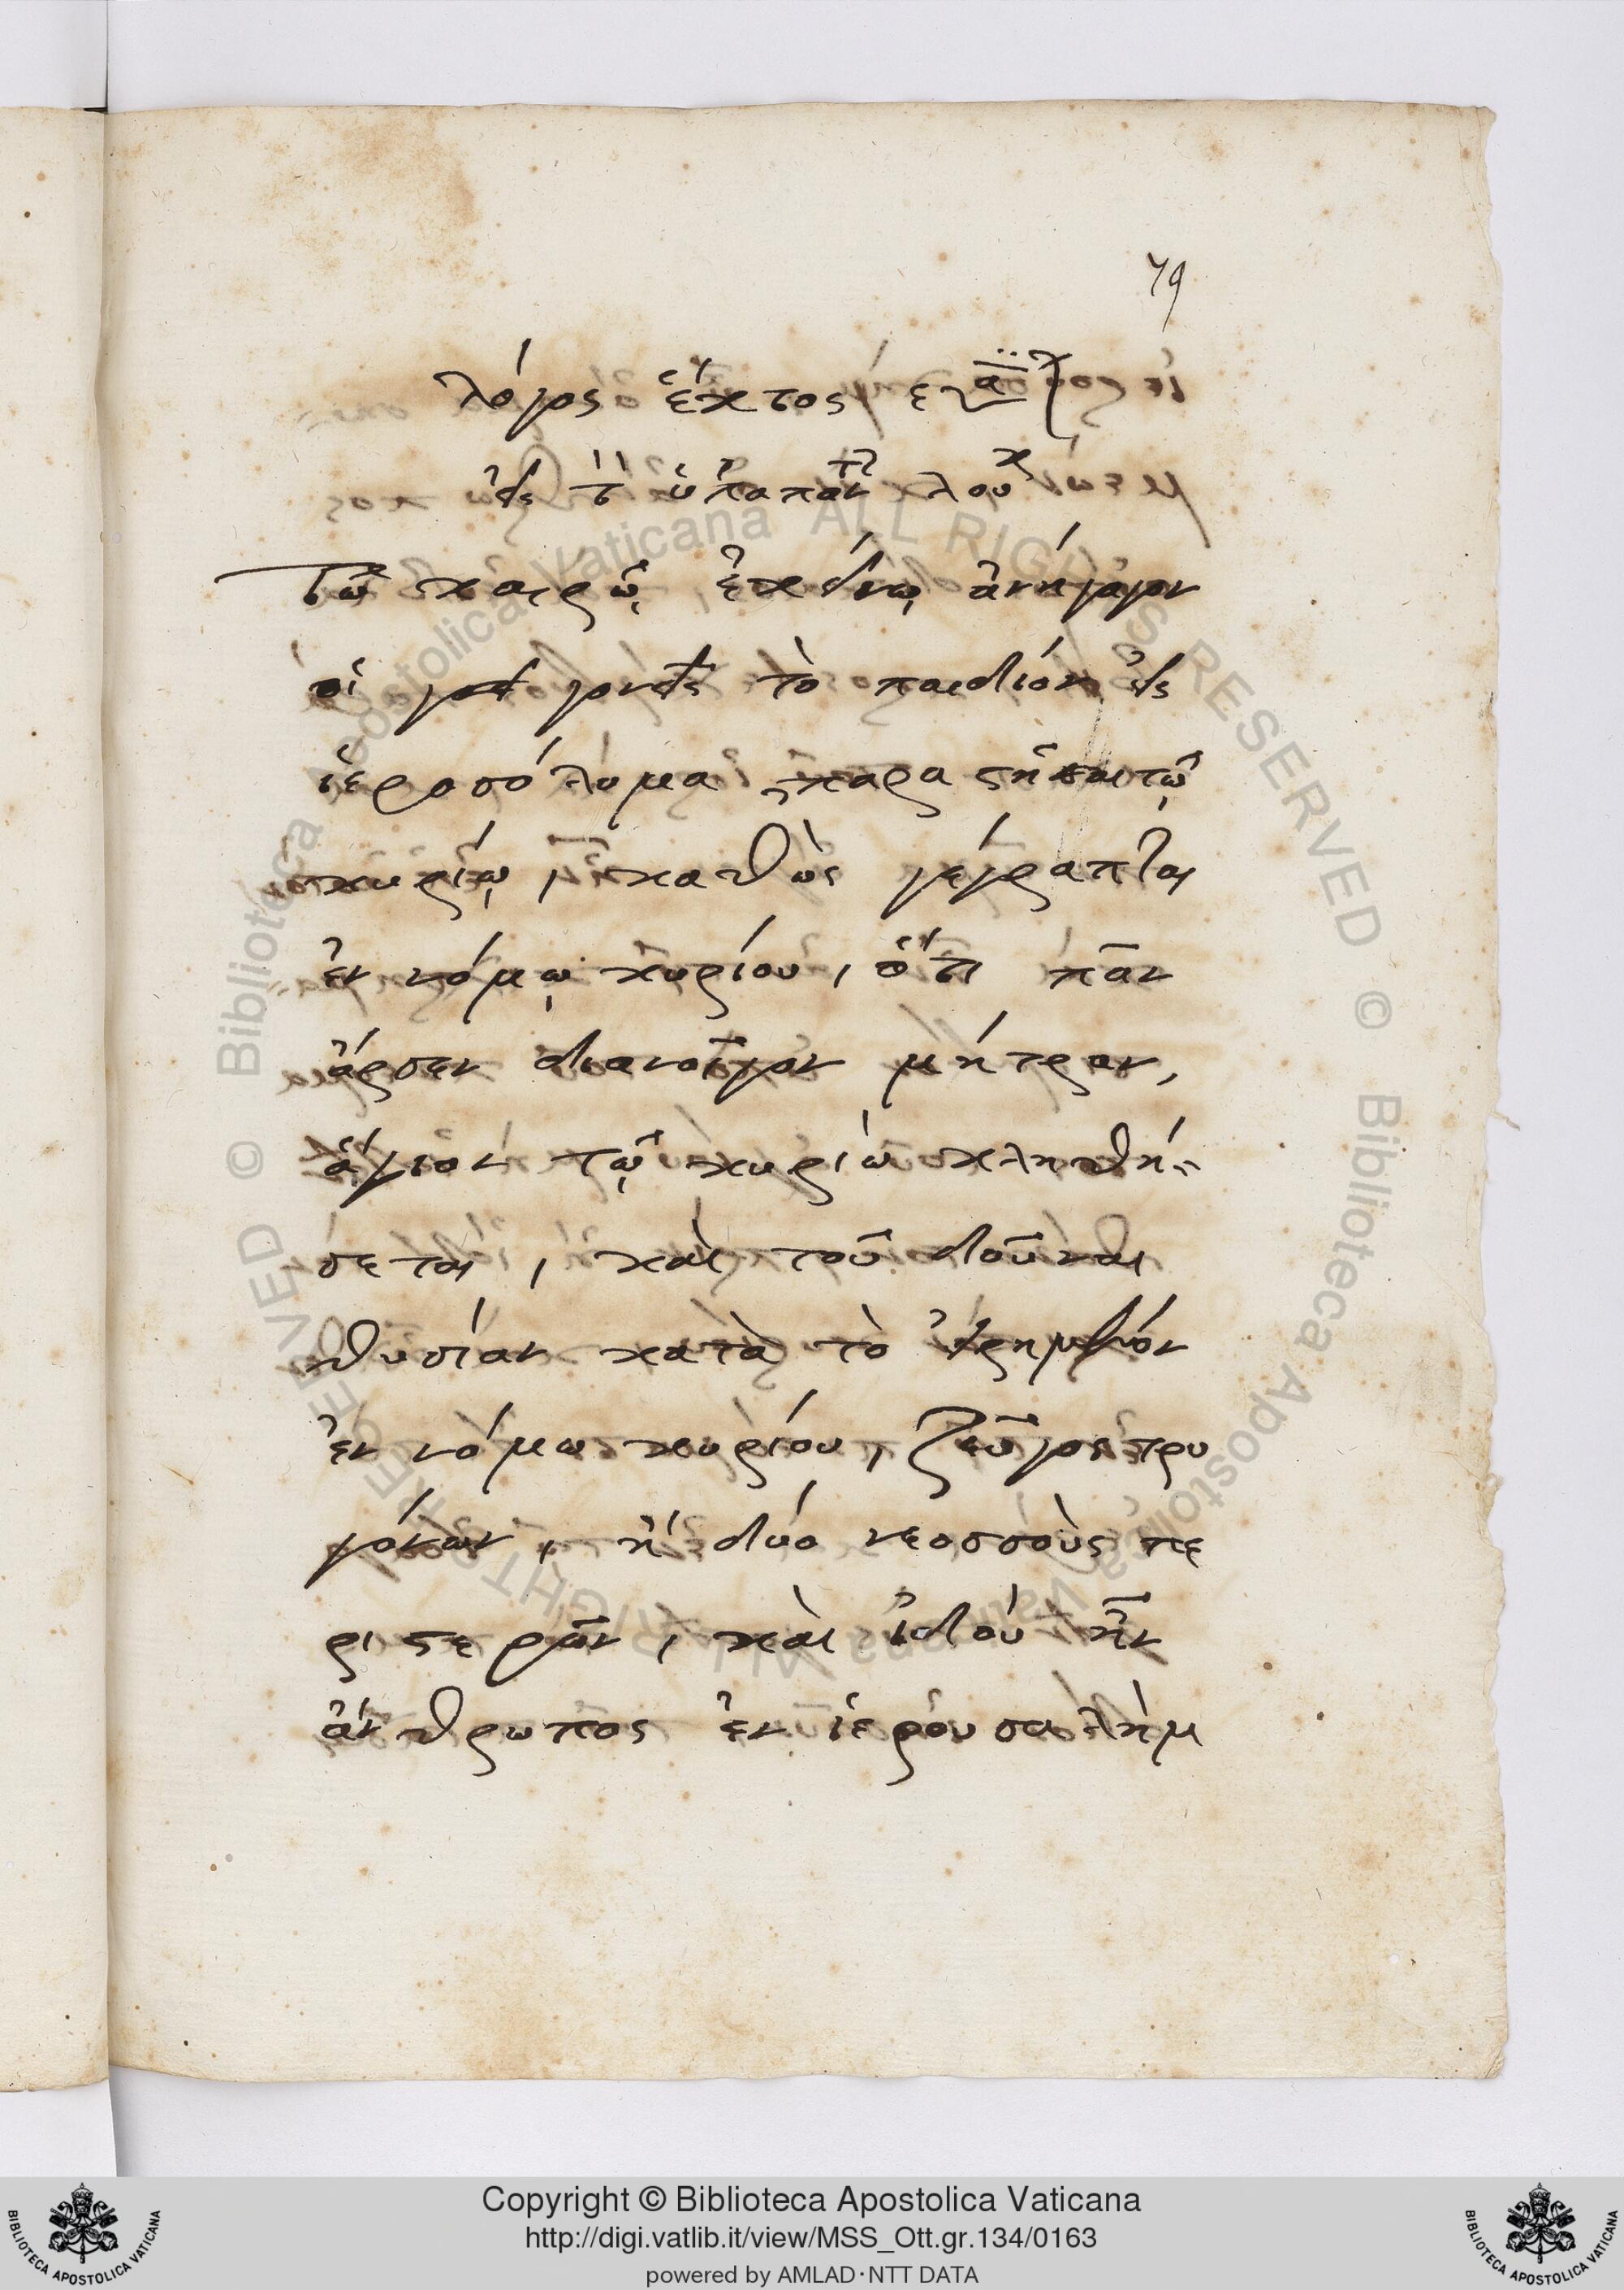 79
λόγος ἕκτος
εἰς τ ὑπαπαν λουκ
Τῶ καιρῶ ἐκείνω ἀνήγαγον
οἱ γονεῖς τὸ παιδίον εἰς
ἱεροσόλυμα παραστῆσαι τῶ
κυρίω, καθὼς γέγραπται
ἐν νόμω κυρίου, ὅτι πᾶν
ἄρσεν διανοῖγον μήτραν,
ἅγιον τῶ κυρίω κληθή-
σεται, καὶ τοῦ δοῦναι
θυσίαν κατὰ τὸ εἰρημένον
ἐν νόμω κυρίου, ζεῦγος τρυ
γόνων, ἢ δύο νεοσσοὺς πε
ριστερῶν, καὶ ἰδοὺ ἦν
ἄνθρωπος ἐν ἱερουσαλὴμ
© Biblioteca Apostolica Vaticana ALL RIGHTS RESERVED
© Biblioteca Apostolica Vaticana ALL RIGHTS RESERVED
Copyright © Biblioteca Apostolica Vaticana
http://digi.vatlib.it/view/MSS_Ott.gr.134/0163
powered by AMLAD·NTT DATA
BIBLIOTECA APOSTOLICA VATICANA
BIBLIOTECA APOSTOLICA VATICANA